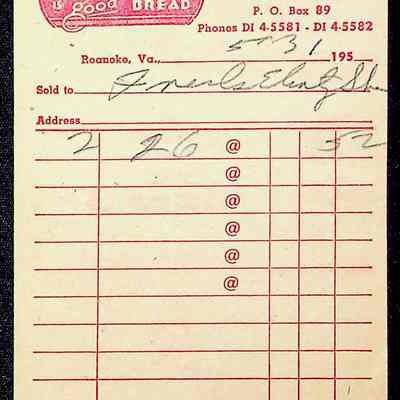 is good BREAD
P. O. Box 89
Phones DI 4-5581 - DI 4-5582
Roanoke, Va., 5-31 195
Sold to
Address
2 26 @ 52
@
@
@
@
@